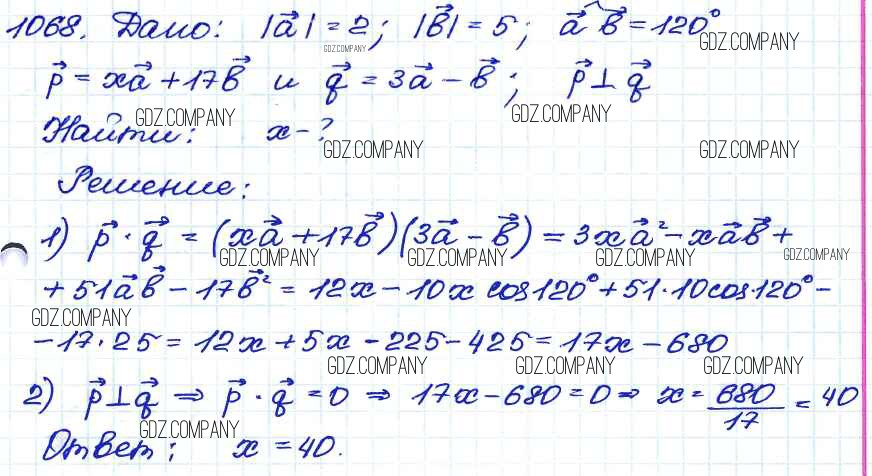 1068. Дано: |a⃗| = 2; |b⃗| = 5; a⃗ ^ b⃗ = 120°
GDZ.COMPANY GDZ.COMPANY
p⃗ = xa⃗ + 17b⃗ и q⃗ = 3a⃗ − b⃗; p⃗ ⊥ q⃗
GDZ.COMPANY GDZ.COMPANY
Найти: x − ?
GDZ.COMPANY GDZ.COMPANY
Решение:
1) p⃗ · q⃗ = (xa⃗ + 17b⃗)(3a⃗ − b⃗) = 3xa⃗² − xa⃗b⃗ +
GDZ.COMPANY GDZ.COMPANY GDZ.COMPANY GDZ.COMPANY
+ 51a⃗b⃗ − 17b⃗² = 12x − 10x cos120° + 51·10cos·120° −
GDZ.COMPANY
− 17·25 = 12x + 5x − 225 − 425 = 17x − 680
GDZ.COMPANY GDZ.COMPANY GDZ.COMPANY
2) p⃗ ⊥ q⃗ ⇒ p⃗ · q⃗ = 0 ⇒ 17x − 680 = 0 ⇒ x = 680/17 = 40
GDZ.COMPANY
Ответ: x = 40.